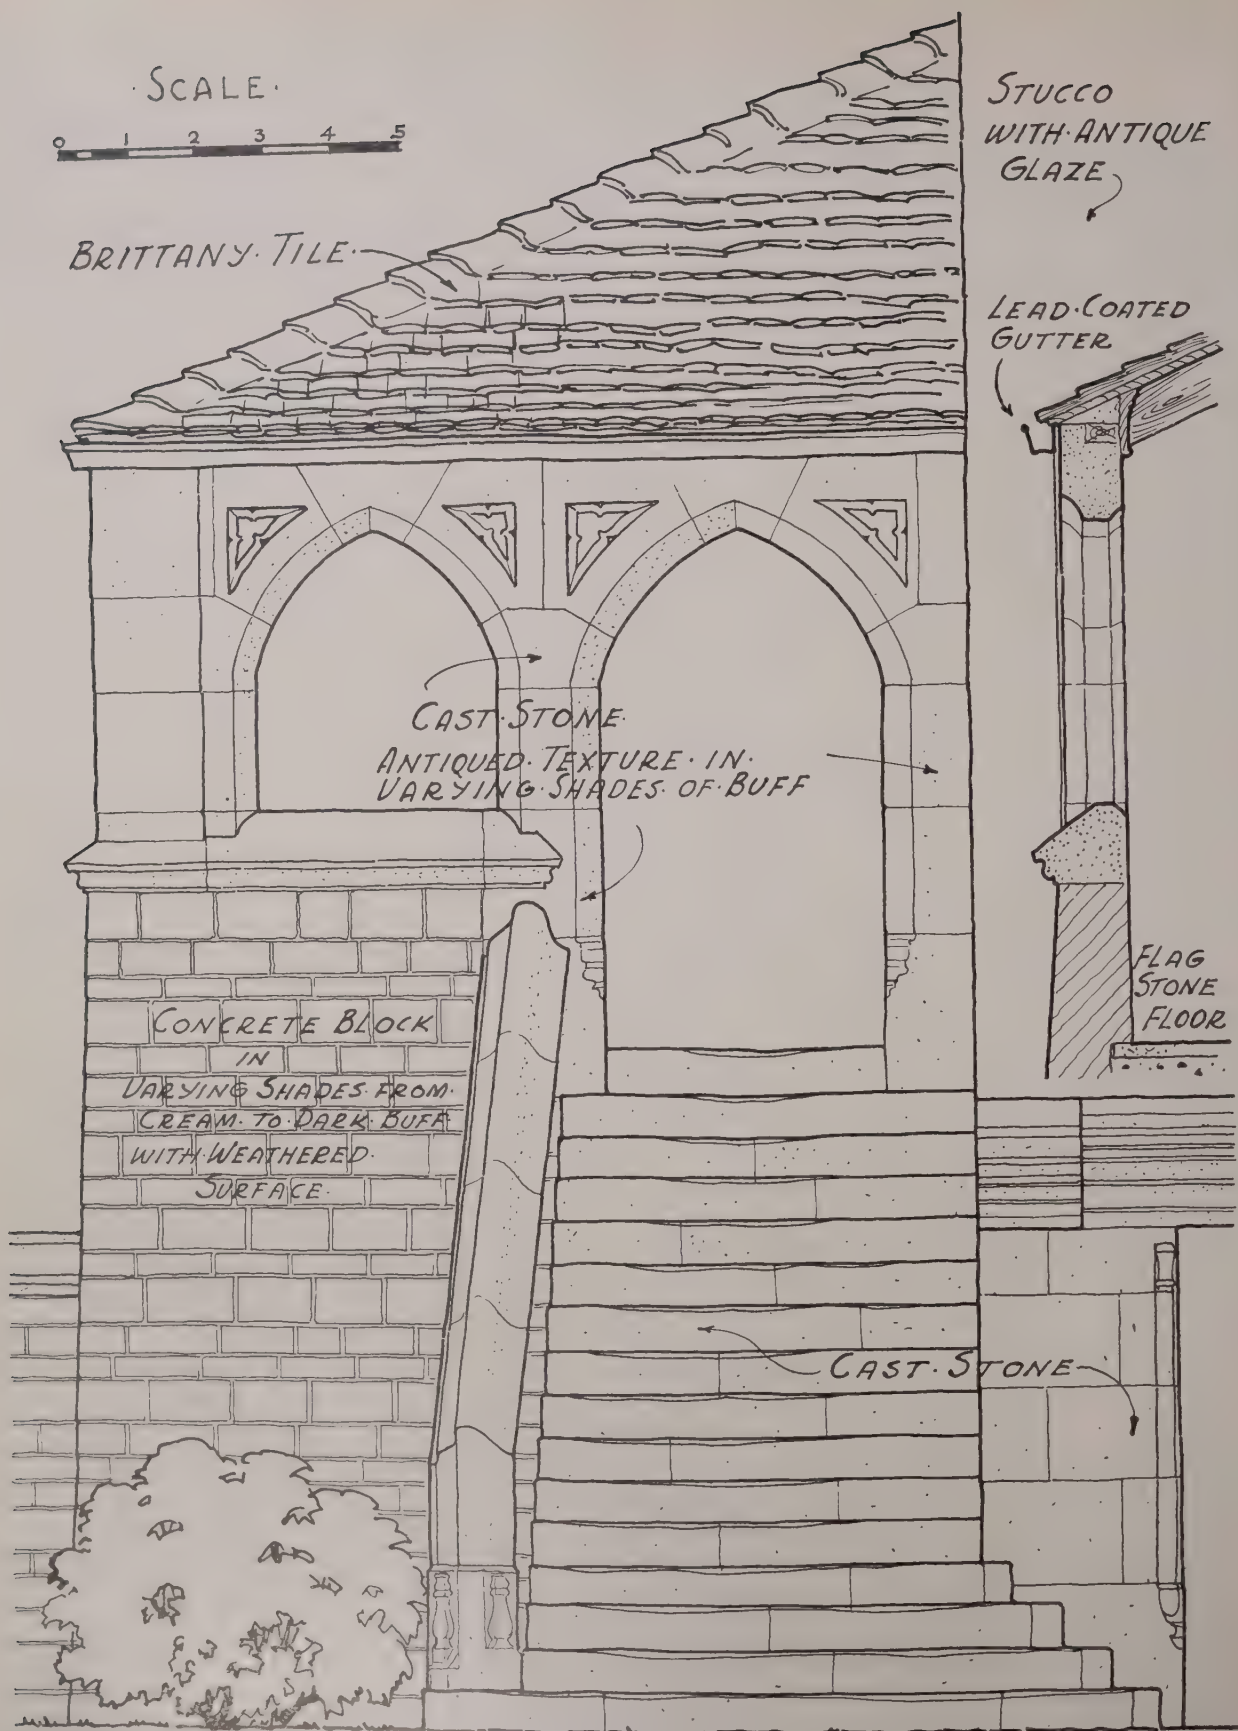 ·SCALE·
0 1 2 3 4 5
STUCCO
WITH·ANTIQUE
GLAZE
BRITTANY·TILE·
LEAD·COATED
GUTTER
CAST·STONE·
ANTIQUED·TEXTURE·IN·
VARYING·SHADES·OF·BUFF
FLAG
STONE
FLOOR
CONCRETE BLOCK
IN
VARYING SHADES·FROM·
CREAM·TO·DARK·BUFF
WITH·WEATHERED·
SURFACE·
CAST·STONE